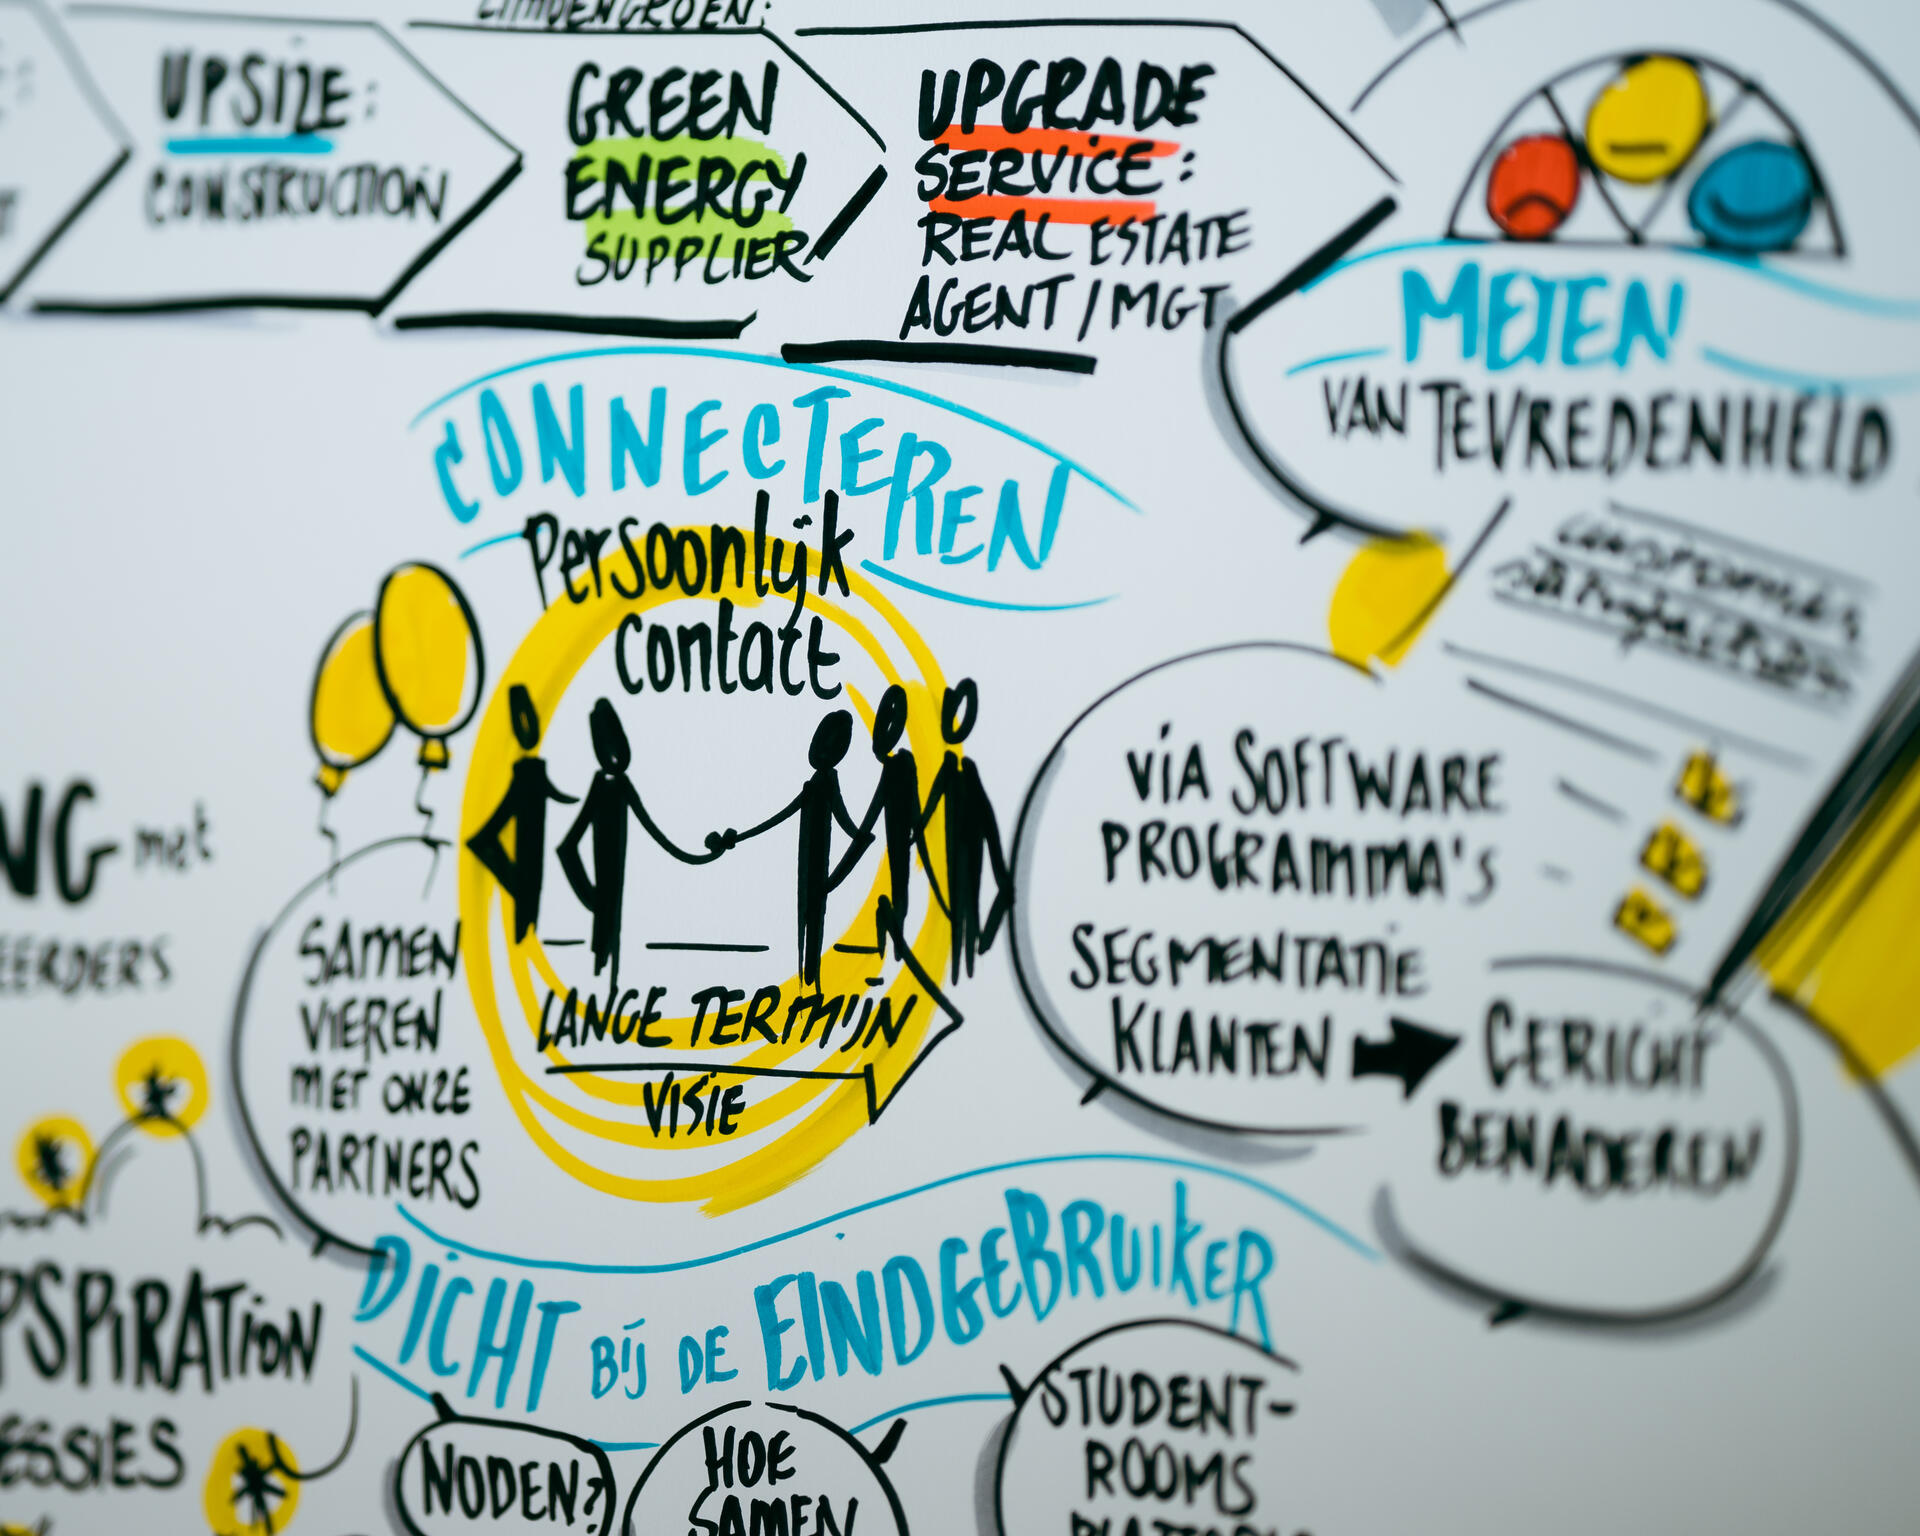 UPSIZE:
CONSTRUCTION
GREEN
ENERGY
SUPPLIER
UPGRADE
SERVICE:
REAL ESTATE
AGENT / MGT
METEN
VAN TEVREDENHEID
CONNECTEREN
Persoonlijk
Contact
LANGE TERMIJN
VISIE
SAMEN
VIEREN
MET ONZE
PARTNERS
met
VIA SOFTWARE
PROGRAMMA'S
SEGMENTATIE
KLANTEN
GERICHT
BENADEREN
DICHT BIJ DE EINDGEBRUIKER
NODEN?
HOE
SAMEN
STUDENT-
ROOMS